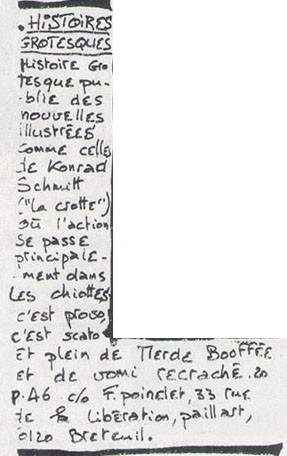 . HiSTOIRES
GROTESQUES
Histoire Gro
tesque pu-
-blie des
nouvelles
illustrées
comme celles
de Konrad
Schmitt
("la crotte")
où l'action
se passe
principale-
-ment dans
les chiottes
c'est provo,
c'est scato
et plein de Merde Booffée
et de vomi recraché. 20
p. A6 c/o F. poinelet, 33 rue
de la Libération, paillart,
0120 Breteuil.